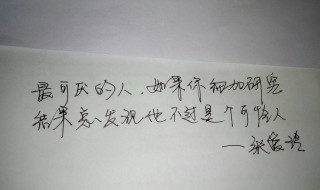 最可厌的人，如果你细加研究
结果总发现他不过是个可怜人
——张爱玲